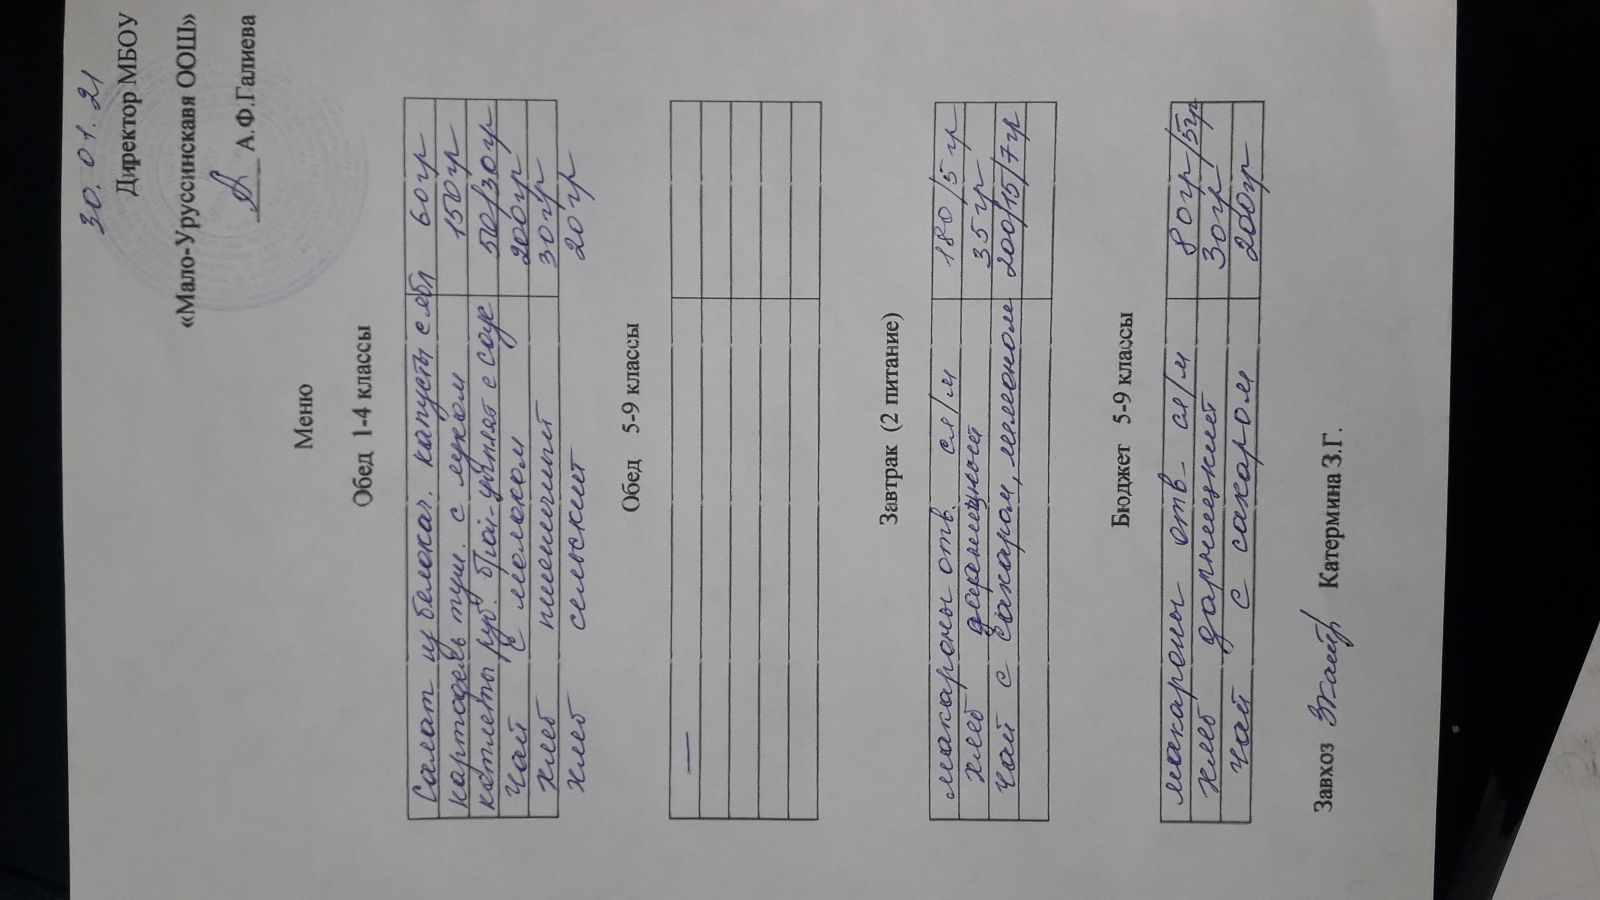 30.01.21
Директор МБОУ
«Мало-Уруссинская ООШ»
А.Ф.Галиева
Меню
Обед 1-4 классы
Салат из белокач. капусты с ябл 60гр
картофель туш. с луком 150гр
котлеты руб. из с соус 50/30гр
чай с молоком 200гр
хлеб пшеничный 30гр
хлеб сельский 20гр
Обед 5-9 классы
—
Завтрак (2 питание)
макароны отв. сл/м 180/5гр
хлеб дарницкий 35гр
чай с сахаром, лимоном 200/15/7гр
Бюджет 5-9 классы
макароны отв. сл/м 80гр/5гр
хлеб дарницкий 30гр
чай с сахаром 200гр
Завхоз Катермина З.Г.